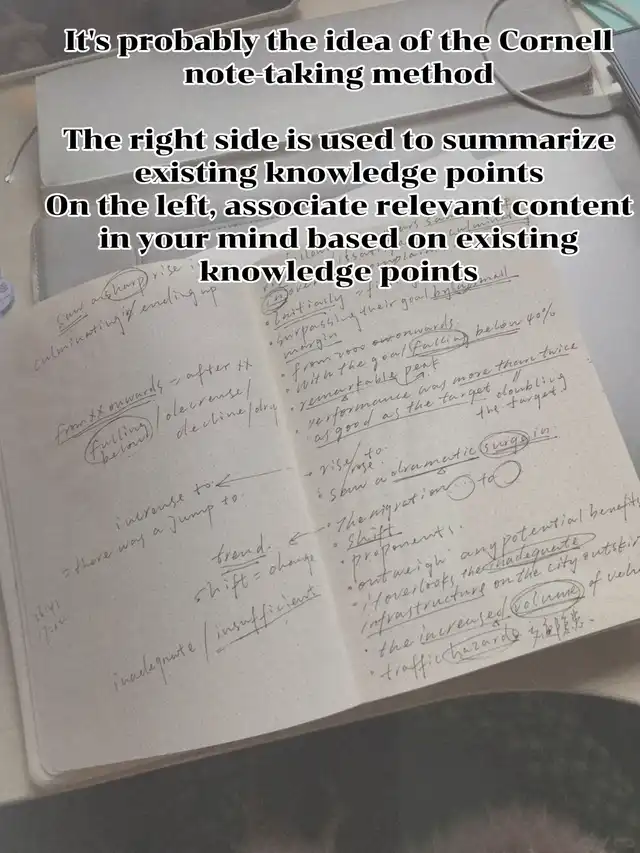 It's probably the idea of the Cornell
note-taking method
The right side is used to summarize
existing knowledge points
On the left, associate relevant content
in your mind based on existing
knowledge points
saw a sharp rise
culminating / ending up
from xx onwards = after xx
falling / decrease /
below decline / dro
increase to
= there was a jump to
trend.
shift = change
inadequate / insufficient
Initially =
surpassing their goal by a small
margin
from 2000 onwards
with the goal falling below 40%
remarkable peak
performance was more than twice
as good as the target doubling
the target
rise/rose to
saw a dramatic surge in
The migration to
shift
proponents.
outweigh any potential benefits
it overlooks the inadequate
infrastructure on the city outskir
the increased volume of vehi
traffic hazards